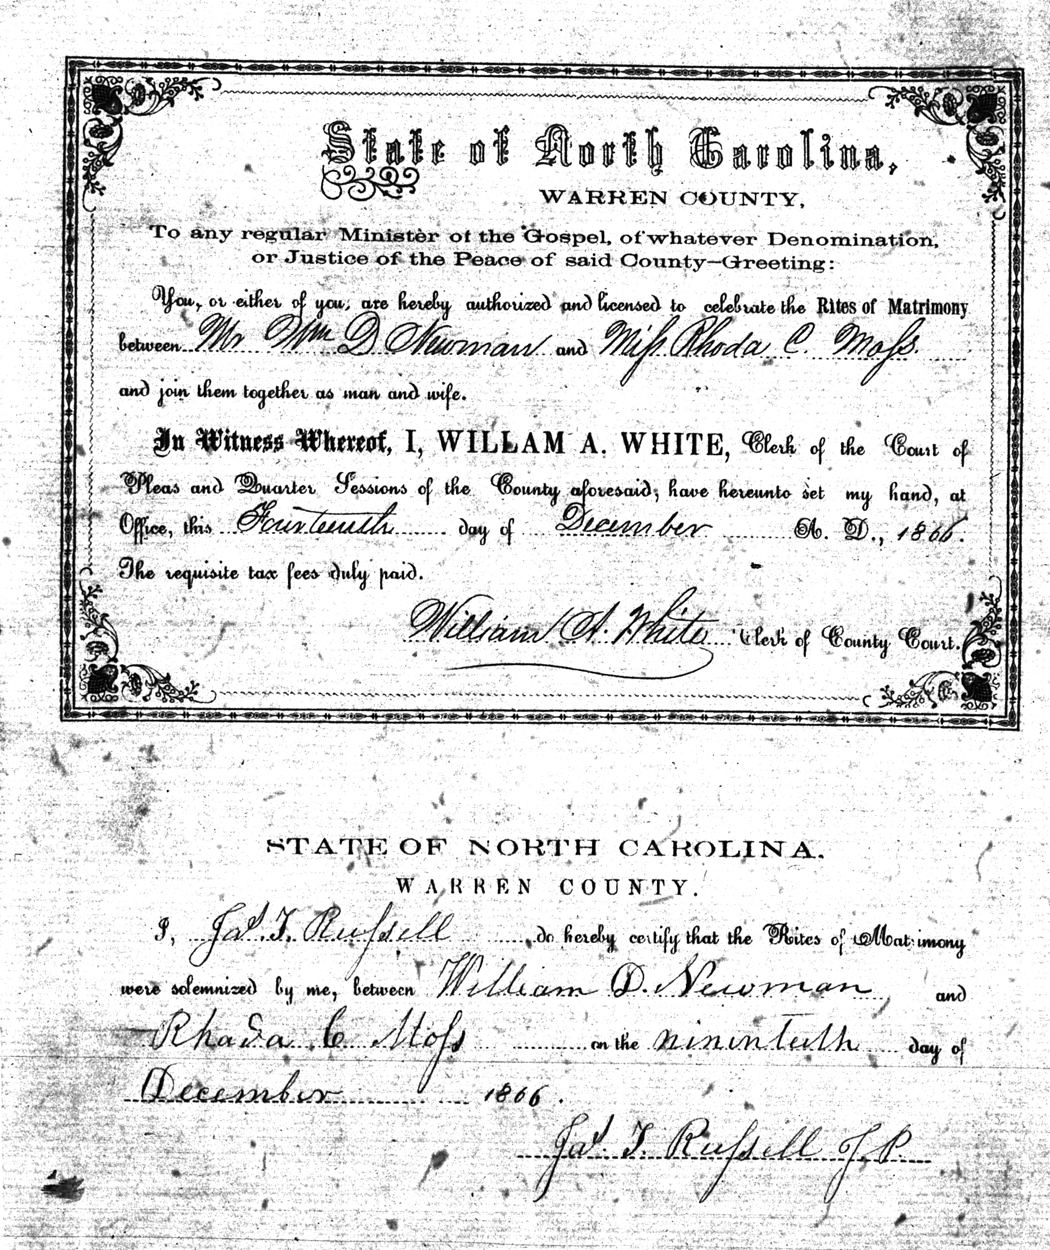 State of North Carolina,
WARREN COUNTY,
To any regular Minister of the Gospel, of whatever Denomination,
or Justice of the Peace of said County—Greeting:
You, or either of you, are hereby authorized and licensed to celebrate the Rites of Matrimony
between Mr Wm D Newman and Miss Rhoda C. Moss.
and join them together as man and wife.
In Witness Whereof, I, WILLAM A. WHITE, Clerk of the Court of
Pleas and Quarter Sessions of the County aforesaid, have hereunto set my hand, at
Office, this Fourteenth day of December A. D., 1866.
The requisite tax fees duly paid.
William A. White Clerk of County Court.
STATE OF NORTH CAROLINA.
WARREN COUNTY.
I, Jas. T. Russell do hereby certify that the Rites of Matrimony
were solemnized by me, between William D. Newman and
Rhoda C Moss on the ninenteeth day of
December 1866.
Jas. T. Russell J.P.